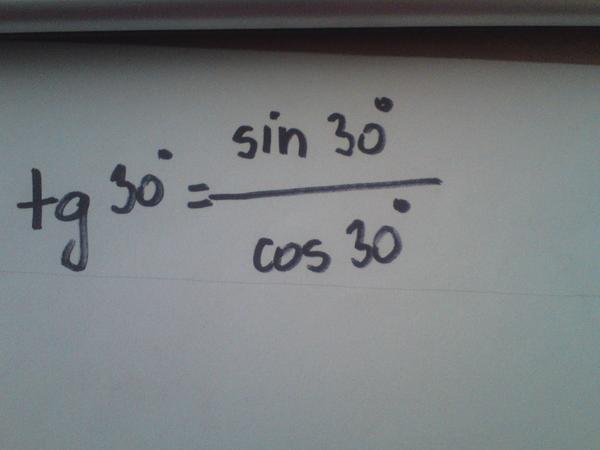 tg 30° = sin 30° / cos 30°